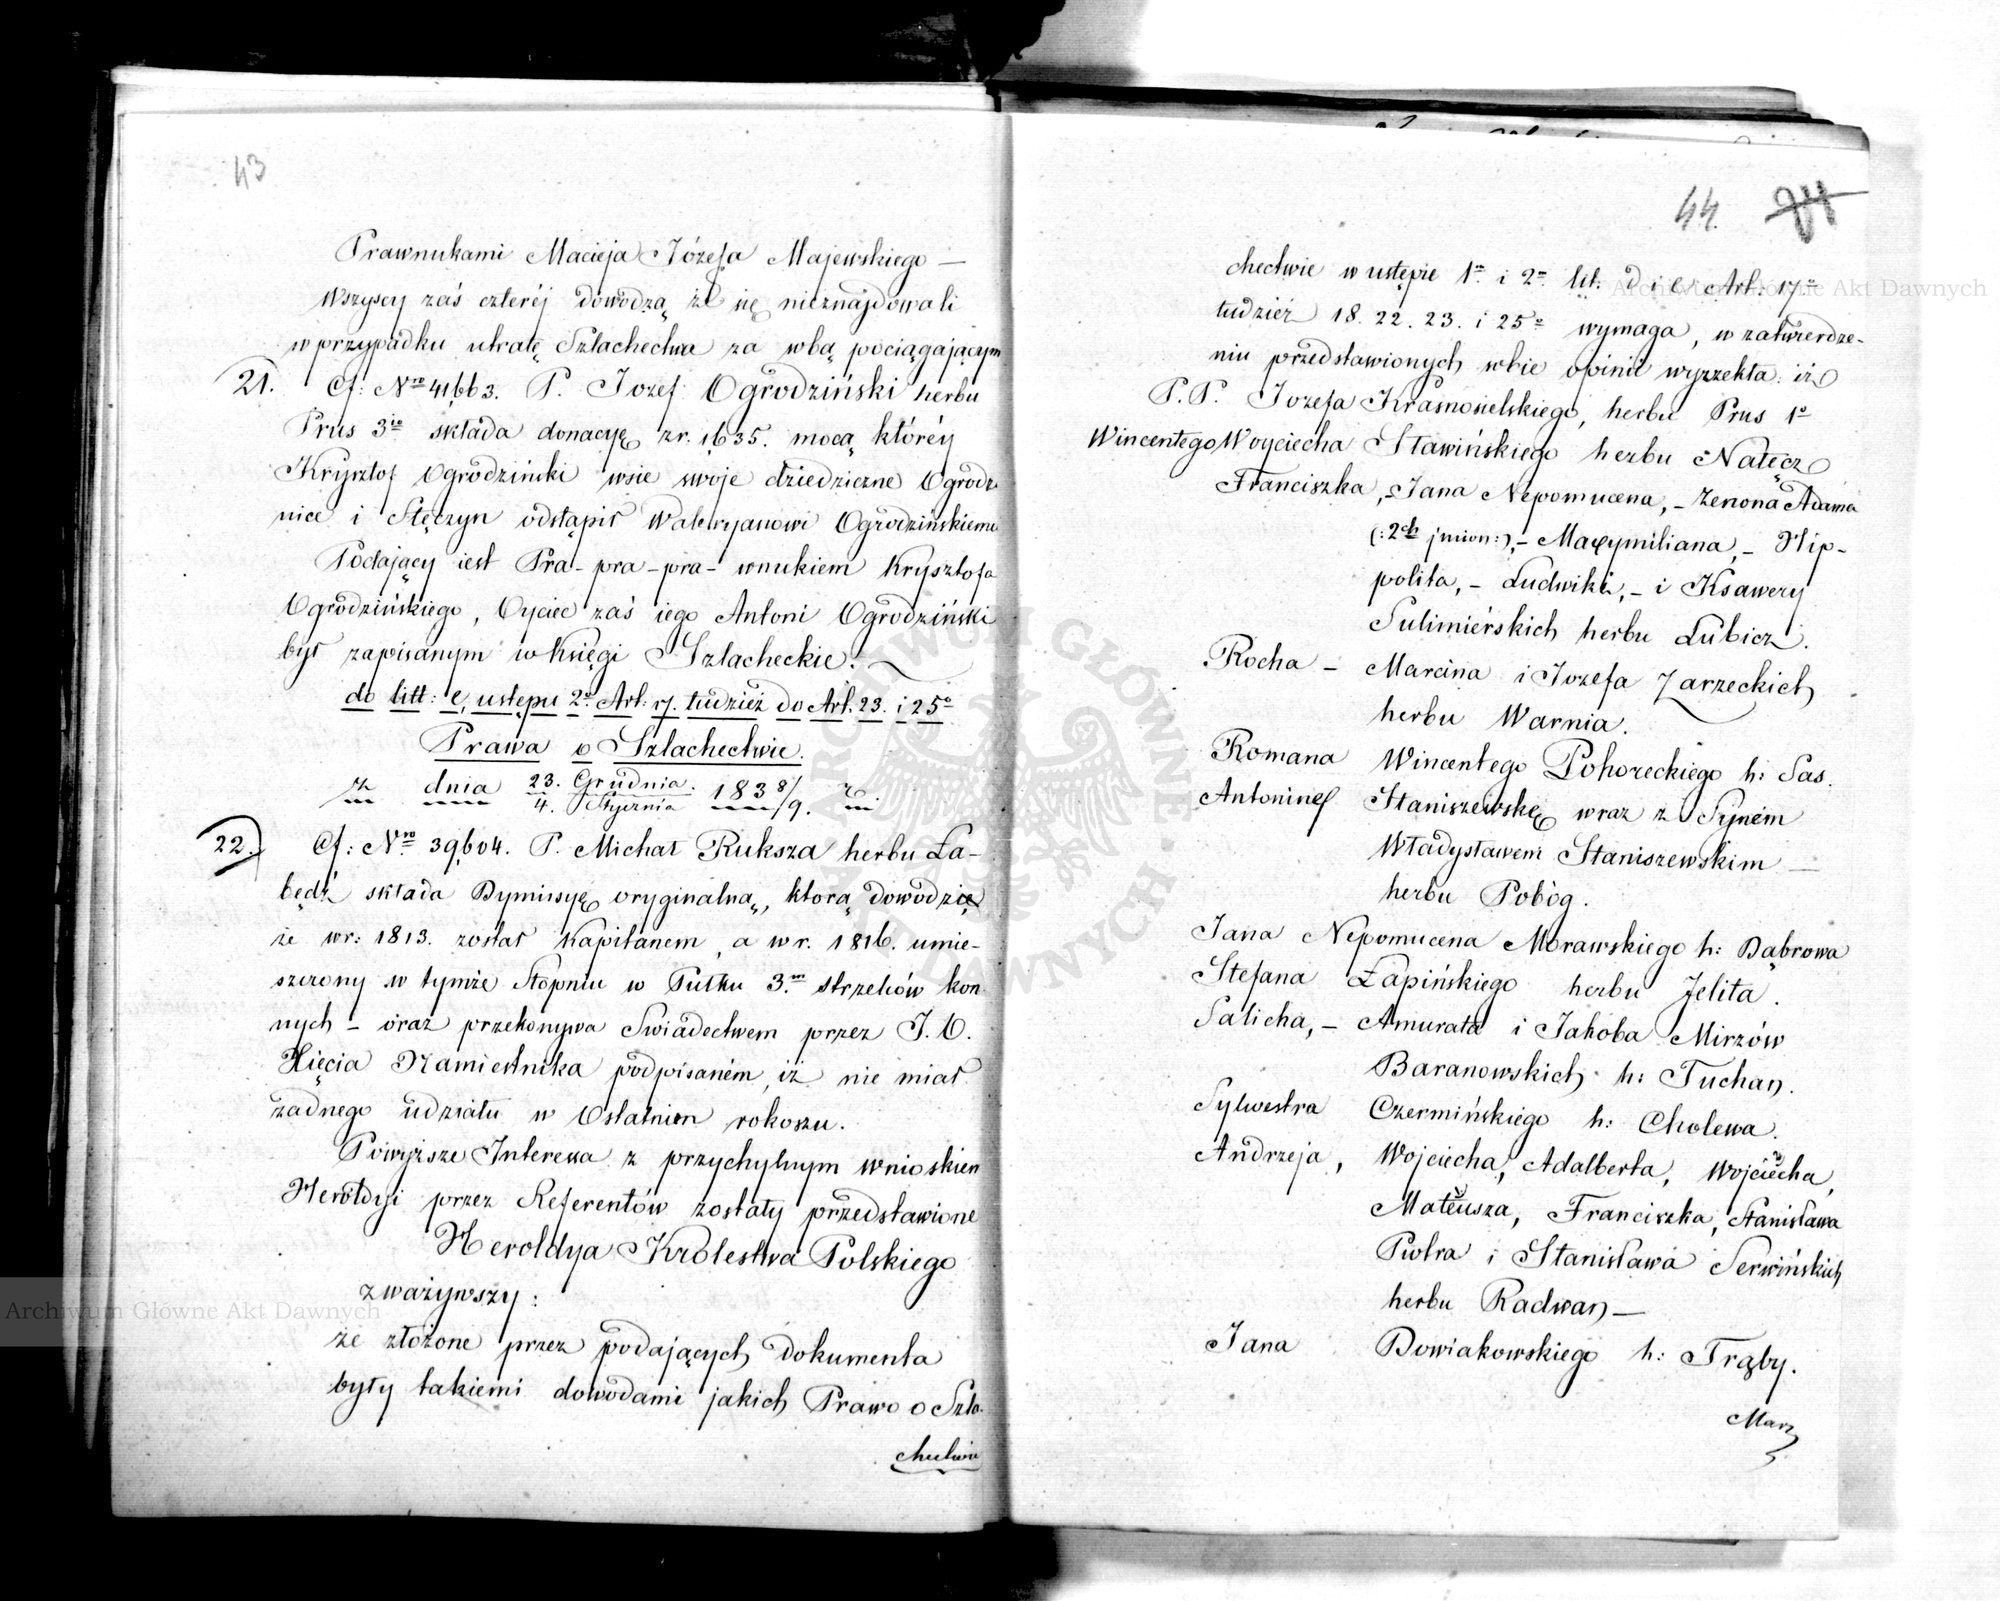 43
Prawnukami Macieja Józefa Majewskiego —
Wszyscy zaś czteréj dowodzą że się nieznajdowali
w przypadku utratę Szlachectwa za sobą pociągającym
21. Cf: Nro 41,663. P. Jozef Ogrodziński herbu
Prus 3io składa donacyę z r. 1635. mocą któréy
Krysztof Ogrodziński wsie swoje dziedziczne Ogrodz-
nice i Stęczyn odstąpił Waleryanowi Ogrodzińskiemu
Podający iest Pra-pra-pra-wnukiem Krysztofa
Ogrodzińskiego, Oyciec zaś iego Antoni Ogrodziński
był zapisanym w Księgi Szlacheckie.
do litt: e, ustępu 2o Art: 17. tudzież do Art. 23. i 25o
Prawa o Szlachectwie.
z dnia 23. Grudnia / 4. Stycznia 1838/9. r.
22. Cf: Nro 39,604. P. Michał Ruksza herbu Ła-
będź składa Dymissyę oryginalną, którą dowodzi
że w r: 1813. został Kapitanem, a w r. 1816. umie-
szczony w tymże Stopniu w Pułku 3m strzelców kon-
nych – oraz przekonywa Swiadectwem przez J. O.
Xięcia Namiestnika podpisaném, iż nie miał
żadnego udziału w Ostatnim rokoszu.
Powyższe Interessa z przychylnym wnioskiem
Heroldyi przez Referentów zostały przedstawione
Heroldya Królestwa Polskiego
zważywszy:
że złożone przez podających dokumenta
były takiemi dowodami jakich Prawo o Szla-
chectwie
44.
chectwie w ustępie 1m i 2m lit: d i e Art: 17o
tudzież 18. 22. 23. i 25o wymaga, w zatwierdze-
niu przedstawionych sobie opinii wyrzekła: iż
P. P. Jozefa Krasnosielskiego, herbu Prus 1o
Wincentego Woyciecha Sławińskiego herbu Nałęcz
Franciszka, – Jana Nepomucena, – Zenona Adama
(:2ch imion:), – Maxymiliana, – Hip-
polita, – Ludwika, – i Ksawery
Sulimierskich herbu Lubicz.
Rocha – Marcina i Jozefa Zarzeckich
herbu Warnia.
Romana Wincentego Pohoreckiego h: Sas.
Antoninę Staniszewskę wraz z Synem
Władysławem Staniszewskim —
herbu Pobóg.
Jana Nepomucena Morawskiego h: Dąbrowa
Stefana Łapińskiego herbu Jelita.
Salicha, – Amurata i Jakoba Mirzów
Baranowskich h: Tuhan.
Sylwestra Czermińskiego h: Cholewa.
Andrzeja, Wojciecha, Adalberta, Wojciecha,
Mateusza, Franciszka, Stanisława
Piotra i Stanisława Serwińskich
herbu Radwan —
Jana Dowiakowskiego h: Trąby.
Archiwum Główne Akt Dawnych
Archiwum Główne Akt Dawnych
ARCHIWUM GŁÓWNE AKT DAWNYCH